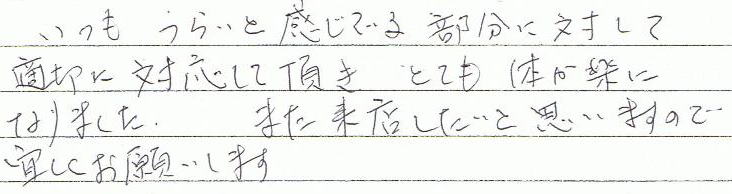 いつも つらいと感じている部分に対して
適切に対応して頂き とても体が楽に
なりました. また来店したいと思いますので
宜しくお願いします